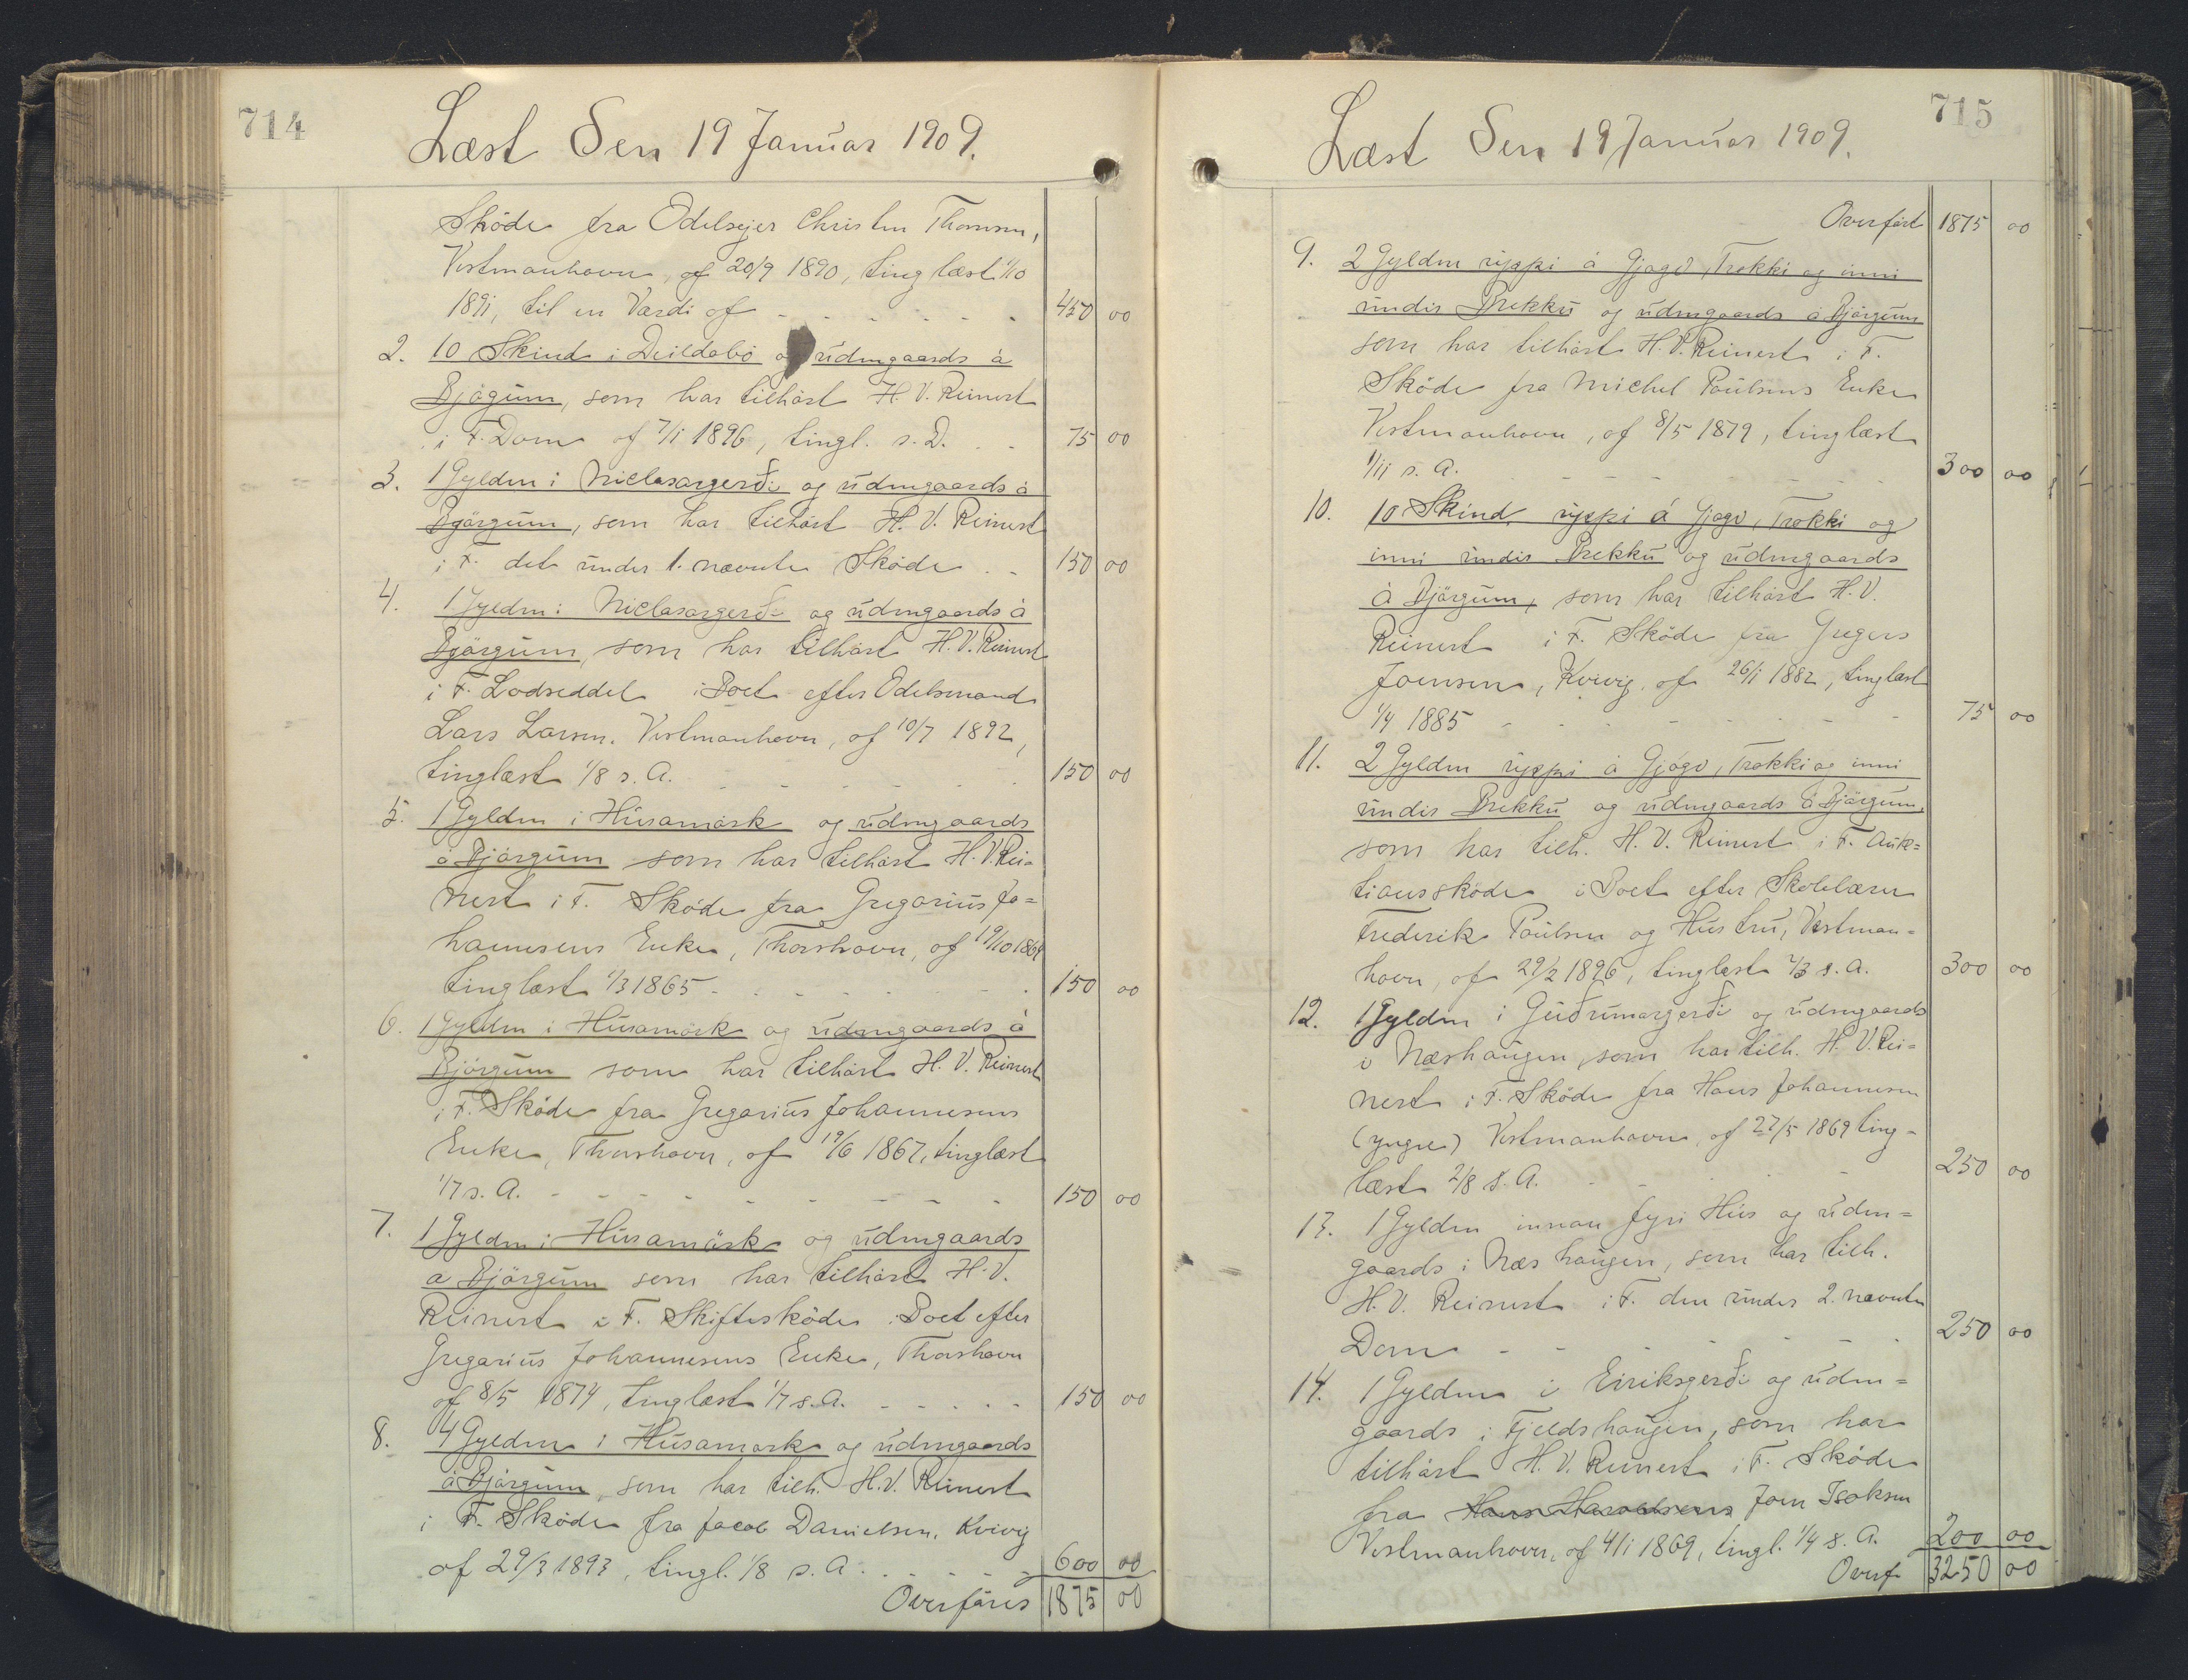 714
Læst Den 19 Januar 1909.
Sköde fra Odelsejer Christen Thomsen,
Vestmanhavn, af 20/9 1890, tinglæst 1/10
1891, til en Værdi af - - - - - - 450 00
2. 10 Skind i Deildabö og udengaards á
Björgum, som har tilhört H. V. Reinert
i F. Dom af 7/1 1896, tingl. s. D. - - 75 00
3. 1 Gylden i Niclasargerði og udengaards á
Björgum, som har tilhört H. V. Reinert
i F. det under 1. nævnte Sköde - - 150 00
4. 1 Gylden i Niclasargerði og udengaards á
Björgum, som har tilhört H. V. Reinert
i F. Lodseddel i Boet efter Odelsmand
Lars Larsen, Vestmanhavn, af 10/7 1892,
tinglæst 1/8 s. A. - - - - - - 150 00
5. 1 Gylden i Húsamörk og udengaards
á Björgum som har tilhört H. V. Rei-
nert i F. Sköde fra Gregorius Jo=
hannesens Enke, Thorshavn, af 19/10 1864
tinglæst 1/3 1865 - - - - - - 150 00
6. 1 Gylden i Húsamörk og udengaards á
Björgum som har tilhört H. V. Reinert
i F. Sköde fra Gregorius Johannesens
Enke, Thorshavn, af 19/6 1867, tinglæst
1/7 s. A. - - - - - - - - 150 00
7. 1 Gylden i Húsamörk og udengaards
á Björgum som har tilhört H. V.
Reinert i F. Skiftesköde i Boet efter
Gregorius Johannesens Enke, Thorshavn
af 8/5 1874, tinglæst 1/7 s. A. - - - - - 150 00
8. 4 Gylden i Húsamörk og udengaards
á Björgum, som har tilh. H. V. Reinert
i F. Sköde fra Jacob Danielsen, Kvivig
af 29/3 1893, tingl. 1/8 s. A. - - - - 600 00
Overföres 1875 00
715
Læst Den 19 Januar 1909.
Overfört 1875 00
9. 2 Gylden uppi á Gjógv, Trøkki og inni
undir Brekku og udengaards á Björgum
som har tilhört H. V. Reinert i F.
Sköde fra Michel Poulsens Enke
Vestmanhavn, af 8/5 1879, tinglæst
1/11 s. A. - - - - - - 300 00
10. 10 Skind uppi á Gjógv, Trøkki og
inni undir Brekku og udengaards
á Björgum, som har tilhört H. V.
Reinert i F. Sköde fra Gregers
Joensen, Kvivig, af 26/1 1882, tinglæst
1/4 1885 - - - - - - 75 00
11. 2 Gylden uppi á Gjógv, Trøkki og inni
undir Brekku og udengaards á Björgum,
som har tilh. H. V. Reinert i F. Auk=
tionssköde i Boet efter Skolelærer
Frederik Poulsen og Hustru, Vestman=
havn, af 29/2 1896, tinglæst 2/3 s. A. 300 00
12. 1 Gylden i Guðrunargerði og udengaards
i Næshaugen, som har tilh. H. V. Rei=
nert i F. Sköde fra Hans Johannesen
(yngre) Vestmanhavn, af 27/5 1869 ting-
læst 2/8 s. A. - - - - 250 00
13. 1 Gylden innan fyri Hús og uden=
gaards i Næshaugen, som har tilh.
H. V. Reinert i F. den under 2. nævnte
Dom - - - - - 250 00
14. 1 Gylden i Eiriksgerði og uden=
gaards i Fjeldshaugen, som har
tilhört H. V. Reinert i F. Sköde
fra Hans Haraldsens Joen Isaksen
Vestmanhavn, af 4/1 1869, tingl. 1/4 s. A. 200 00
Overf. 3250 00